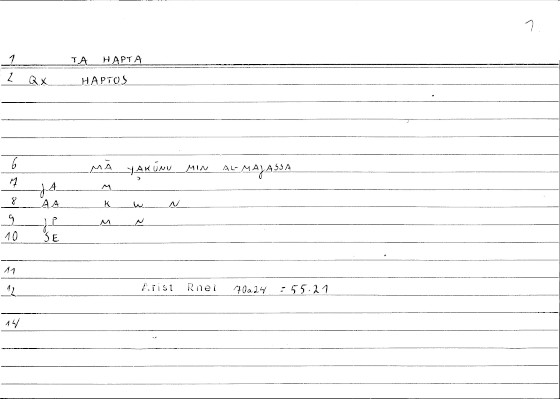 1
1 TA HAPTA
2 QX HAPTOS
6 MĀ YAKŪNU MIN AL-MAJASSA
7 jA M
8 AA K W N
9 jP M N
10 SE
11
12 Arist Rhet 70a24 = 55.21
14